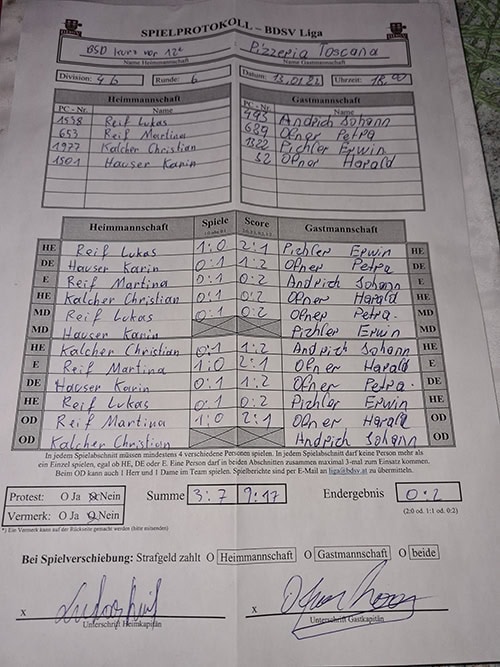 SPIELPROTOKOLL – BDSV Liga
BSD kurz vor 12e Pizzeria Toscana
Name Heimmannschaft Name Gastmannschaft
Division: 4b Runde: 6 Datum: 13.01.23 Uhrzeit: 18.00
Heimmannschaft Gastmannschaft
PC - Nr. Name PC - Nr. Name
1538 Reif Lukas 493 Andrich Johann
653 Reif Martina 689 Ofner Petra
1977 Kalcher Christian 1322 Pichler Erwin
1501 Hauser Karin 32 Ofner Harald
Heimmannschaft Spiele Score Gastmannschaft
HE Reif Lukas 1:0 2:1 Pichler Erwin HE
DE Hauser Karin 0:1 1:2 Ofner Petra DE
E Reif Martina 0:1 0:2 Andrich Johann E
HE Kalcher Christian 0:1 0:2 Ofner Harald HE
MD Reif Lukas 0:1 0:2 Ofner Petra. MD
MD Hauser Karin Pichler Erwin MD
HE Kalcher Christian 0:1 1:2 Andrich Johann HE
E Reif Martina 1:0 2:1 Ofner Harald E
DE Hauser Karin 0:1 1:2 Ofner Petra. DE
HE Reif Lukas 0:1 0:2 Pichler Erwin HE
OD Reif Martina 1:0 2:1 Ofner Harald OD
OD Kalcher Christian Andrich Johann OD
In jedem Spielabschnitt müssen mindestens 4 verschiedene Personen spielen. In jedem Spielabschnitt darf keine Person mehr als
ein Einzel spielen, egal ob HE, DE oder E. Eine Person darf in beiden Abschnitten zusammen maximal 3-mal zum Einsatz kommen.
Beim OD kann auch 1 Herr und 1 Dame im Team spielen. Spielberichte sind per E-Mail an liga@bdsv.at zu übermitteln.
Protest: O Ja O Nein Summe 3:7 9:17 Endergebnis 0:2
Vermerk: O Ja O Nein (2:0 od. 1:1 od. 0:2)
*) Ein Vermerk kann auf der Rückseite gemacht werden (bitte mitsenden)
Bei Spielverschiebung: Strafgeld zahlt O Heimmannschaft O Gastmannschaft O beide
x x
Unterschrift Heimkapitän Unterschrift Gastkapitän